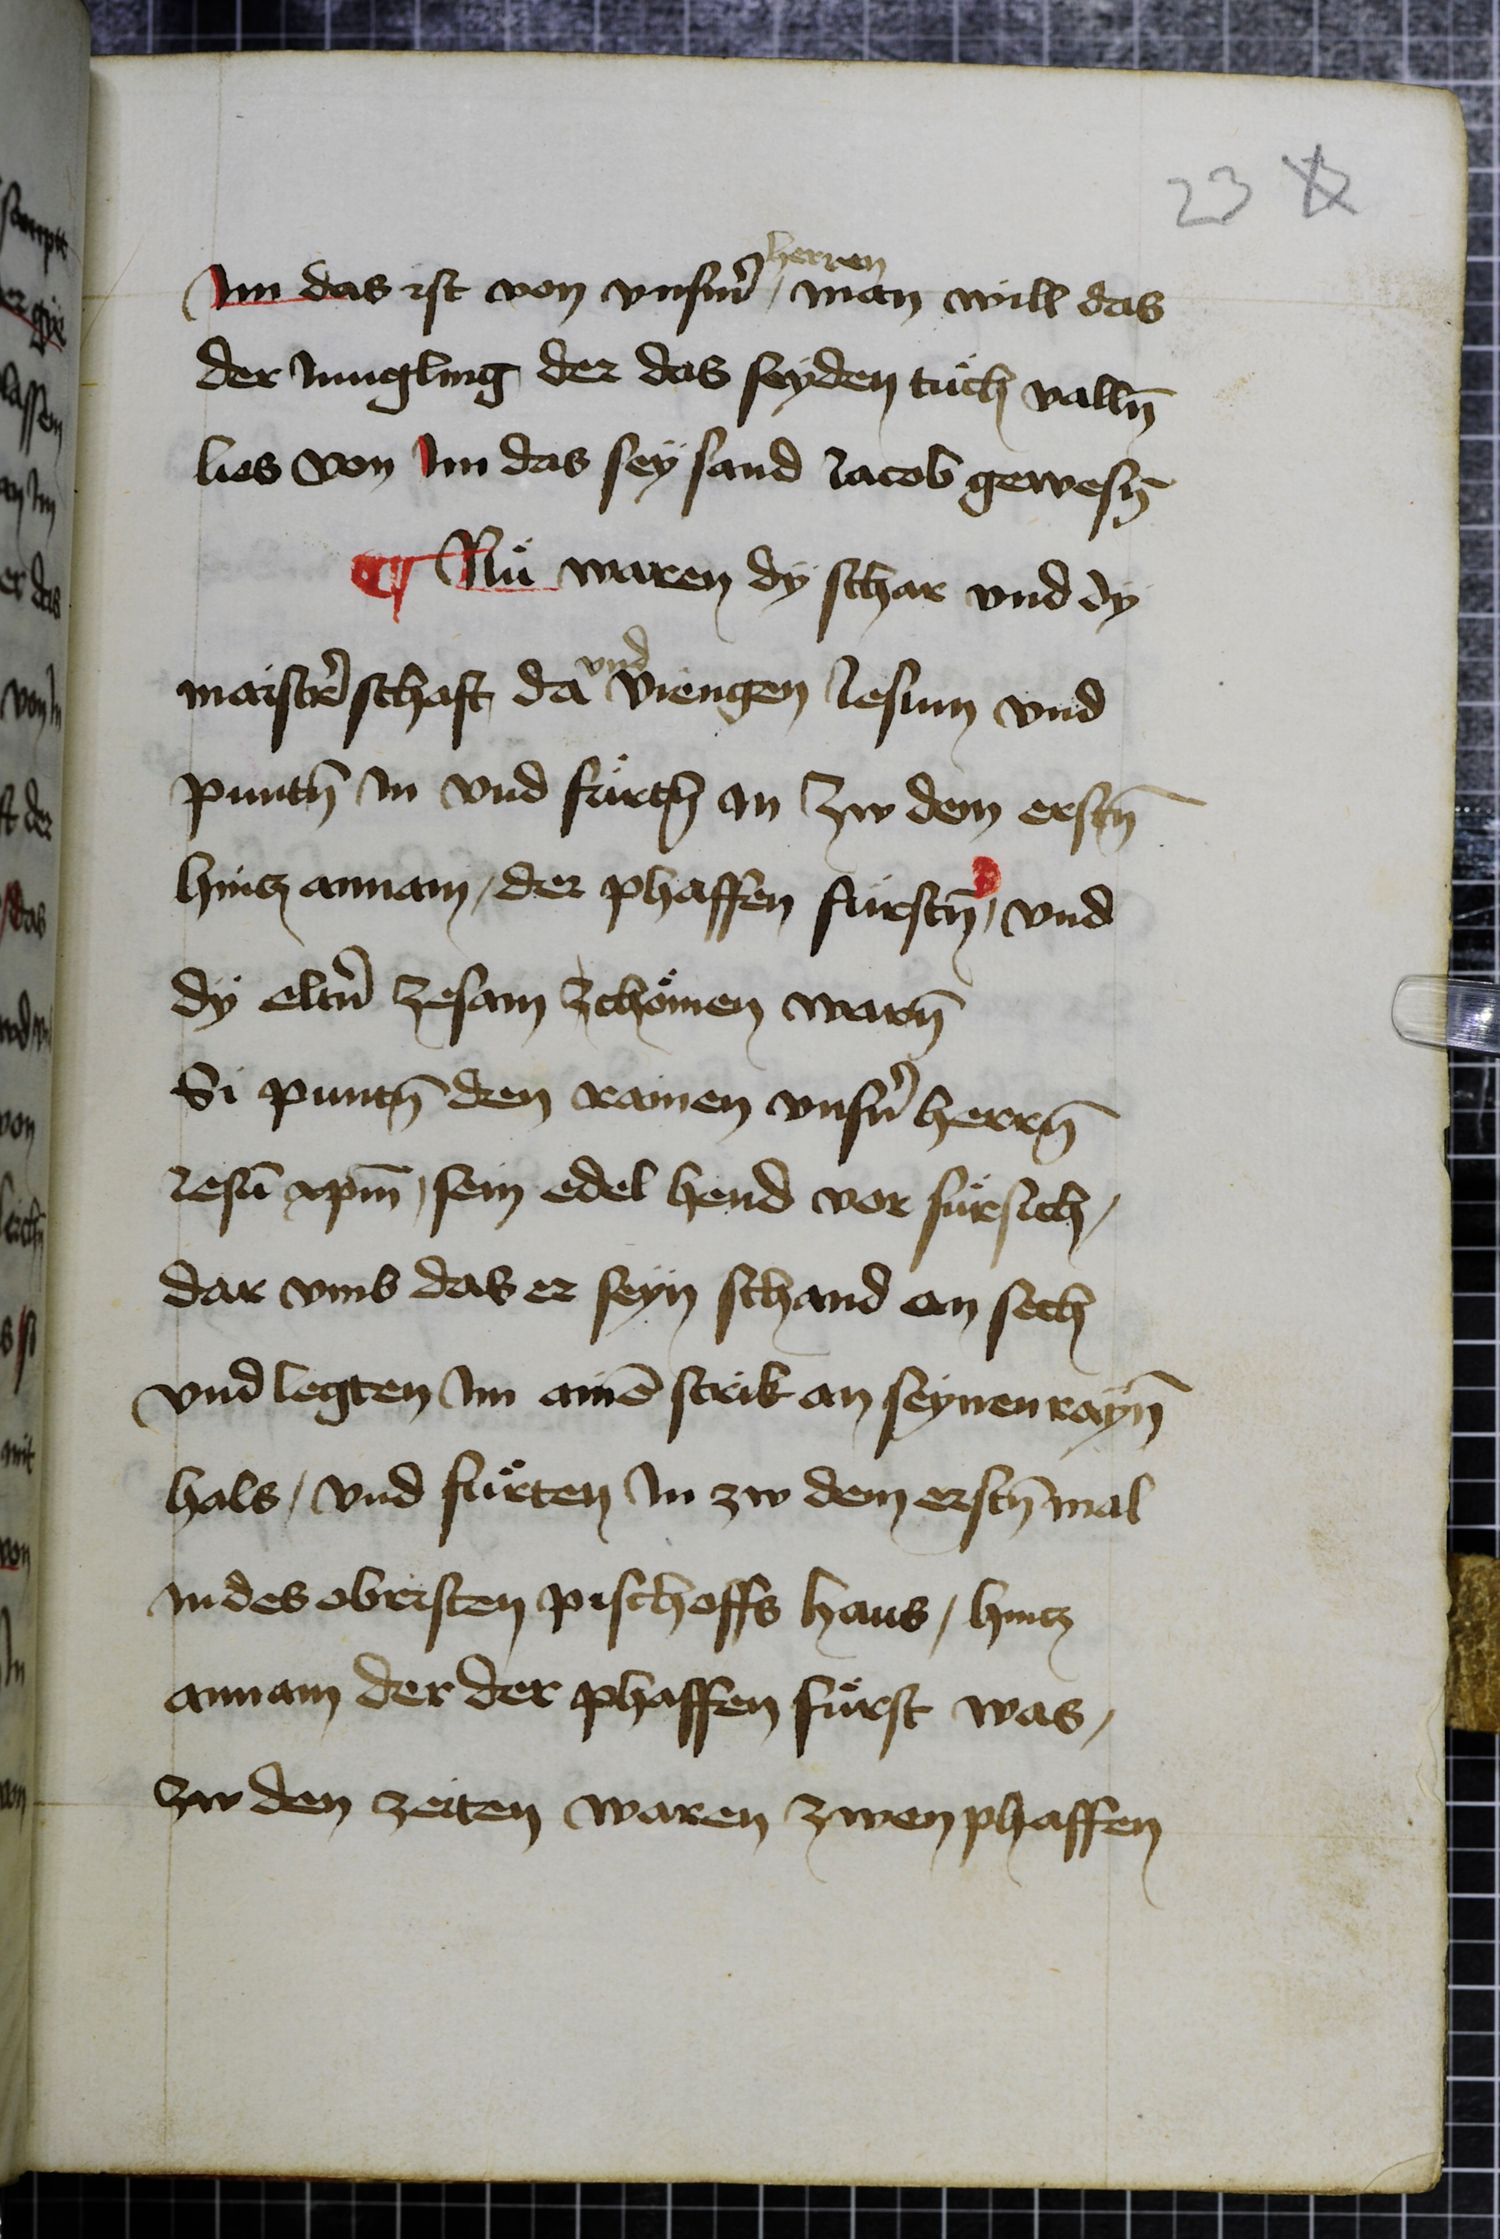 23
herren
Im das ist von vnsm̄ / man will das
der Jungling der das seyden tuͦch valln̄
lies von Im das seÿ sand Jacob gewesn̄
¶ Nuͦ waren dÿ schar vnd dÿ
vnd
maistr̄schaft da viengen Jesum vnd
puntn̄ In vnd fuͤrtn̄ an zw dem erstn̄
hintz annam / der phaffen fuͤrstn̄ / vnd
dÿ eltn̄ zesam zchömen warn̄
Si puntn̄ den rainen vnsn̄ herrn̄
Jesū xpm̄ / sein edel hend vor fuͤrsich /
dar vmb das er seyn schand an sech
vnd legten Im ainē strik an seynen rayn̄
hals / vnd fuͤrten In zw dem erstn̄ mal
In des obristen pischoffs haus / hintz
annam der der phaffen fuͤrst was /
zw den zeiten waren zwen phaffen